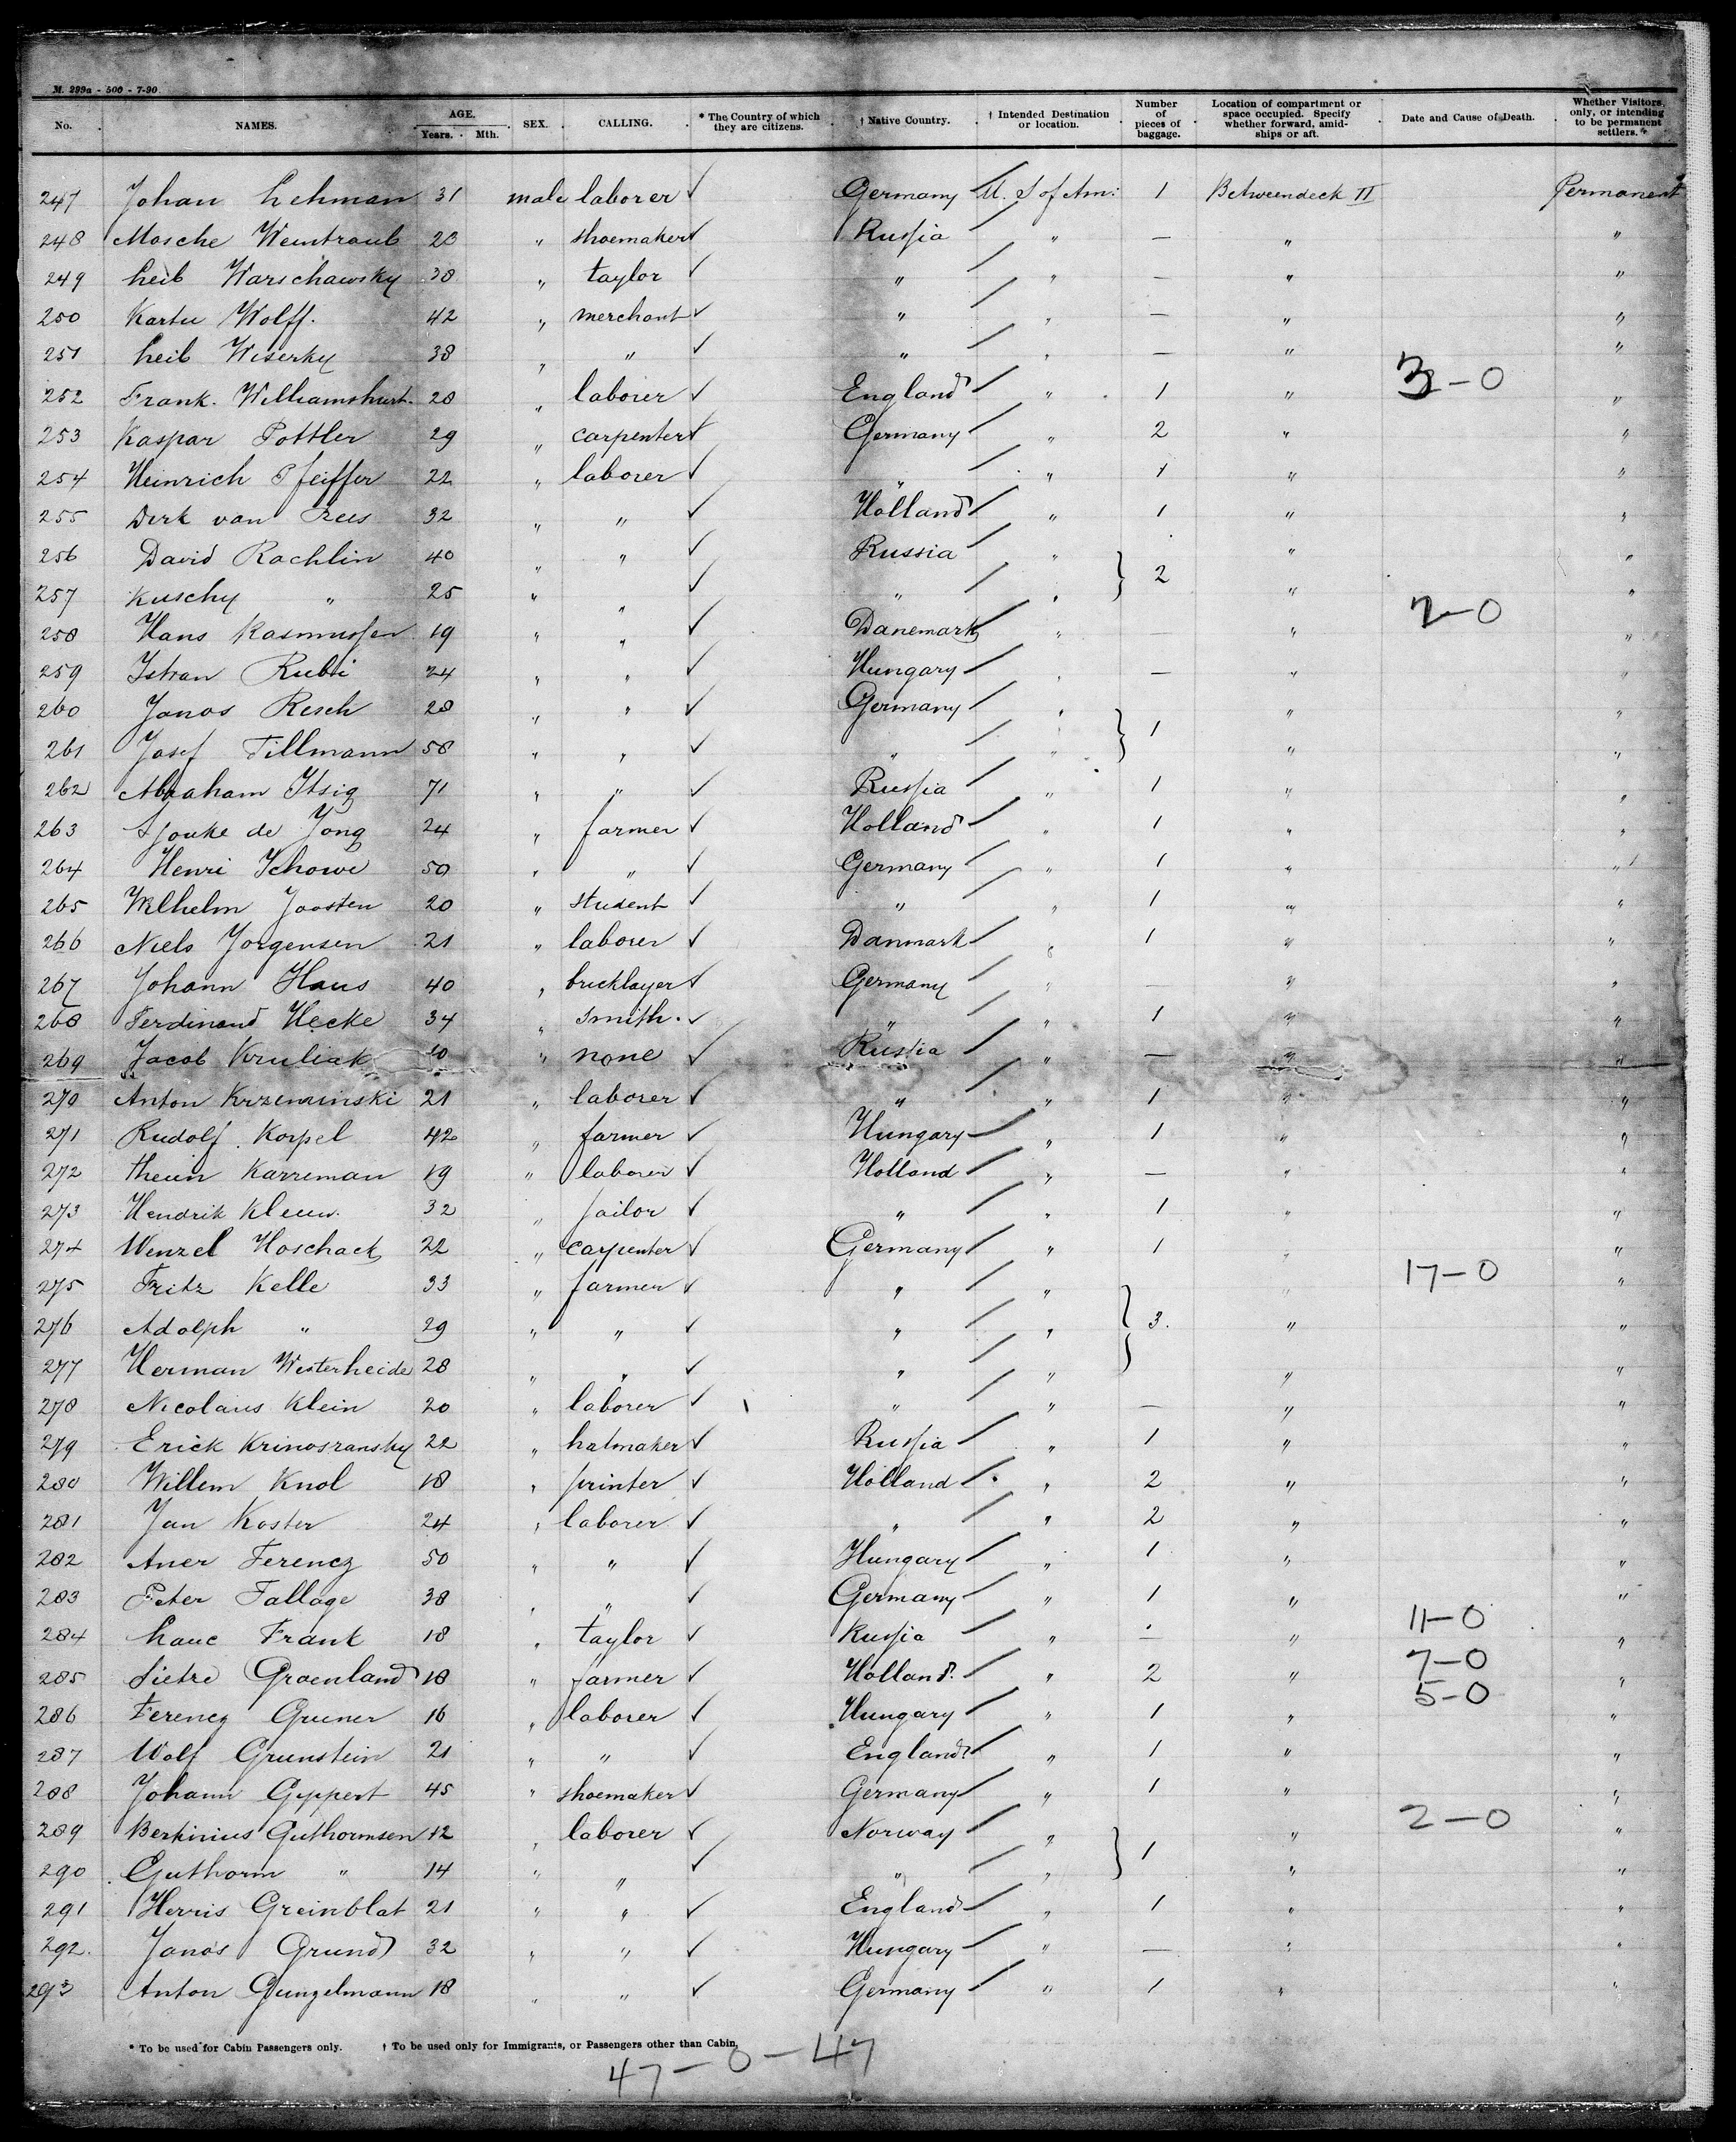 M. 299a - 500 - 7-90
No. NAMES. AGE. Years. Mth. SEX. CALLING. * The Country of which they are citizens. † Native Country. † Intended Destination or location. Number of pieces of baggage. Location of compartment or space occupied. Specify whether forward, amidships or aft. Date and Cause of Death. Whether Visitors, only, or intending to be permanent settlers.
247 Johan Lehman 31 male laborer ✓ Germany U. S of Am: 1 Betweendeck II Permanent
248 Mosche Weintraub 23 " shoemaker ✓ Russia " — " "
249 Leib Warschawsky 38 " taylor ✓ " " — " "
250 Wolff. 42 " merchant ✓ " " — " "
251 Leib Wiserky 38 " " ✓ " " — " "
3-0
252 Frank. Williamshurst. 28 " laborer ✓ England " 1 " "
253 Kaspar Pottler 29 " carpenter ✓ Germany " 2 " "
254 Heinrich Pfeiffer 22 " laborer ✓ " " 1 " "
255 Dirk van Trees 32 " " ✓ Holland " 1 " "
256 David Rachlin 40 " " ✓ Russia " } 2 " "
257 Kuschy " 25 " " ✓ " " " "
2-0
258 Hans Rasmussen 19 " " ✓ Danemark " — " "
259 Istvan Rubi 24 " " ✓ Hungary " — " "
260 Janos Resch 28 " " ✓ Germany " } 1 " "
261 Josef Tillmann 58 " " ✓ " " " "
262 Abraham Itsig 71 " " ✓ Russia " 1 " "
263 Sjouke de Jong 24 " farmer ✓ Holland " 1 " "
264 Henri Schowe 50 " " ✓ Germany " 1 " "
265 Wilhelm Joosten 20 " student ✓ " " 1 " "
266 Niels Jorgensen 21 " laborer ✓ Danmark " 1 " "
267 Johann Haus 40 " bricklayer ✓ Germany " — " "
268 Ferdinand Hecke 34 " smith. ✓ " " 1 " "
269 Jacob Kruliak 10 " none ✓ Russia " — " "
270 Anton Krzeminski 21 " laborer ✓ " " 1 " "
271 Rudolf Korpel 42 " farmer ✓ Hungary " 1 " "
272 Karreman 19 " laborer ✓ Holland " — " "
273 Hendrik Kleuw. 32 " sailor ✓ " " 1 " "
274 Wenzel Hoschack 22 " carpenter ✓ Germany " 1 " "
17-0
275 Fritz Kelle 33 " farmer ✓ " " } " "
276 Adolph " 29 " " ✓ " " 3. " "
277 Herman Westerheide 28 " " ✓ " " } " "
278 Nicolaus Klein 20 " laborer ✓ " " — " "
279 Erick Krinosransky 22 " hatmaker ✓ Russia " 1 " "
280 Willem Knol 18 " printer ✓ Holland " 2 " "
281 Jan Koster 24 " laborer ✓ " " 2 " "
282 Aner Ferencz 50 " " ✓ Hungary " 1 " "
283 Peter Fallage 38 " " ✓ Germany " 1 " "
11-0
284 Frank 18 " taylor ✓ Russia " — " "
7-0
285 Sietze Groenland 18 " farmer ✓ Holland. " 2 " "
5-0
286 Ferencz Gruner 16 " laborer ✓ Hungary " 1 " "
287 Wolf Grunstein 21 " " ✓ England " 1 " "
288 Johann Geppert 45 " shoemaker ✓ Germany " 1 " "
2-0
289 Berkinius Guthormsen 12 " laborer ✓ Norway " } 1 " "
290 Guthorm " 14 " " ✓ " " " "
291 Herris Greinblat 21 " " ✓ England " 1 " "
292. Janos Grund 32 " " ✓ Hungary " — " "
293 Anton Gunzelmann 18 " " ✓ Germany " 1 " "
* To be used for Cabin Passengers only. † To be used only for Immigrants, or Passengers other than Cabin.
47-0-47